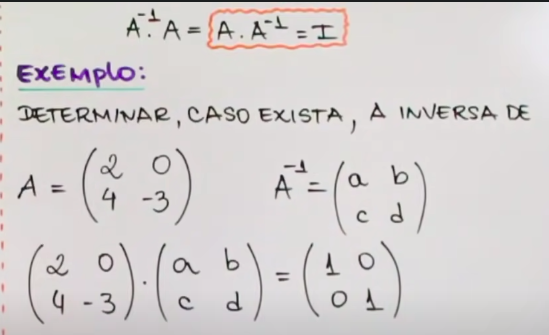 A⁻¹. A = A . A⁻¹ = I
EXEMPLO:
DETERMINAR, CASO EXISTA, A INVERSA DE
A = (2 0
4 -3) A⁻¹ = (a b
c d)
(2 0
4 -3) . (a b
c d) = (1 0
0 1)